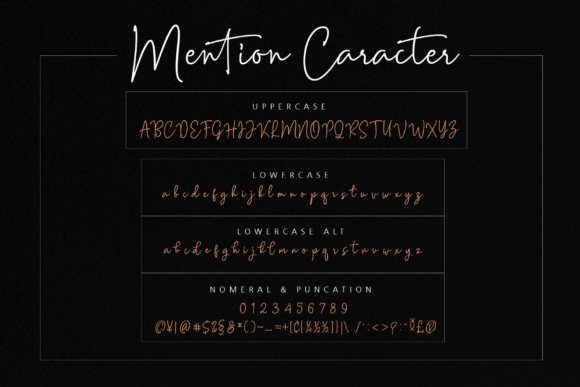 Mention Caracter
UPPERCASE
ABCDEFGHIJKLMNOPQRSTUVWXYZ
LOWERCASE
abcdefghijklmnopqrstuvwxyz
LOWERCASE ALT
abcdefghijklmnopqrstuvwxyz
NOMERAL & PUNCATION
0123456789